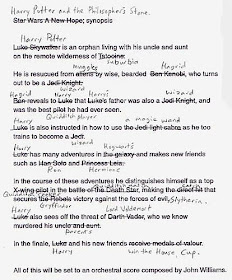 Harry Potter and the Philosopher's Stone.
Star Wars A New Hope; synopsis
Harry Potter
Luke Skywalker is an orphan living with his uncle and aunt
suburbia
on the remote wilderness of Tatooine.
muggles Hagrid
He is rescued from aliens by wise, bearded Ben Kenobi, who turns
wizard
out to be a Jedi Knight.
Hagrid Harry Harry's wizard
Ben reveals to Luke that Luke's father was also a Jedi Knight, and
Quidditch player
was the best pilot he had ever seen.
Harry a magic wand
Luke is also instructed in how to use the Jedi light sabre as he too
wizard
trains to become a Jedi.
Harry Hogwarts
Luke has many adventures in the galaxy and makes new friends
Ron Hermione
such as Han Solo and Princess Leia.
In the course of these adventures he distinguishes himself as a top
Quidditch
X-wing pilot in the battle of the Death Star, making the direct hit that
Slytherin.
secures the Rebels victory against the forces of evil.
Harry Lord Voldemort
Luke also sees off the threat of Darth Vader, who we know
murdered his uncle and aunt.
parents
In the finale, Luke and his new friends receive medals of valour.
Harry win the House Cup.
All of this will be set to an orchestral score composed by John Williams.